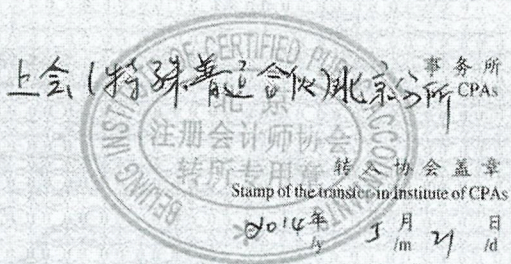 上会(特殊普通合伙)北京分所 事务所
CPAs
BEIJING INSTITUTE OF CERTIFIED PUBLIC ACCOUNTANTS
北京
注册会计师协会
转所专用章
转入协会盖章
Stamp of the transfer-in Institute of CPAs
2014年 月 21日
/y /m /d